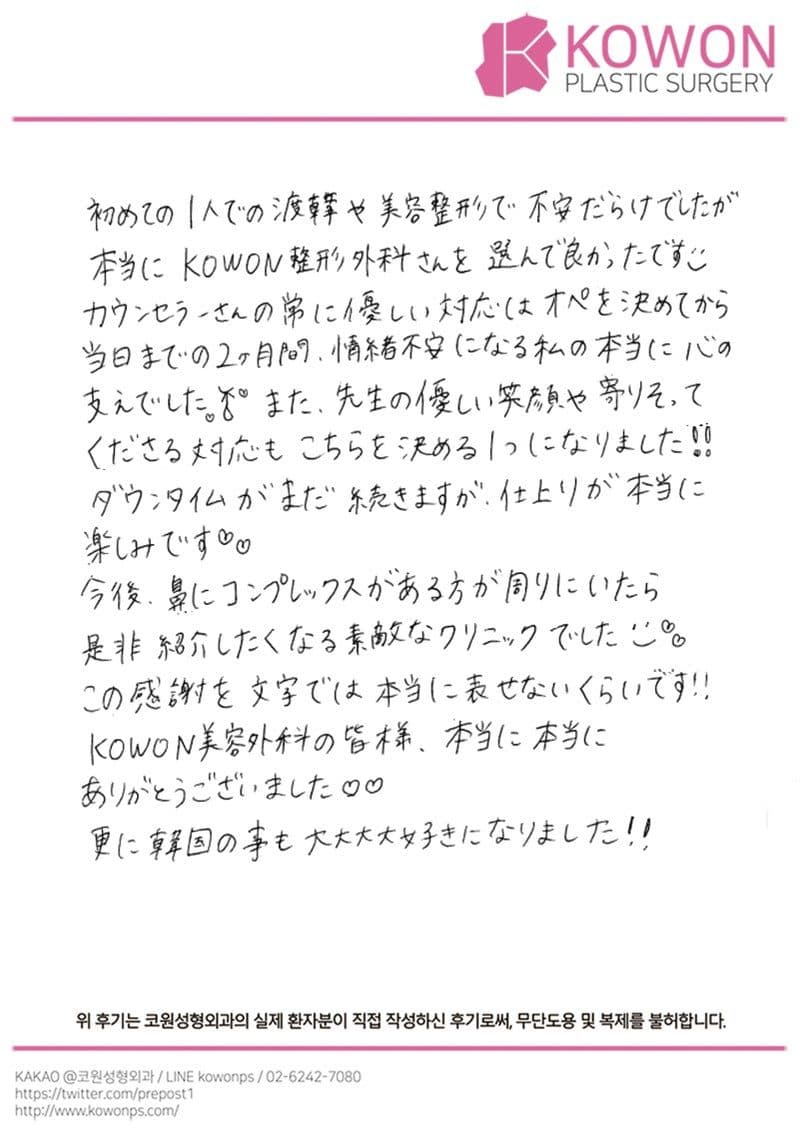 KOWON
PLASTIC SURGERY
初めての1人での渡韓や美容整形で不安だらけでしたが
本当にKOWON整形外科さんを選んで良かったです
カウンセラーさんの常に優しい対応はオペを決めてから
当日までの2ヶ月間、情緒不安になる私の本当に心の
支えでした。また、先生の優しい笑顔や寄りそって
くださる対応もこちらを決める1つになりました!!
ダウンタイムがまだ続きますが、仕上りが本当に
楽しみです♡♡
今後、鼻にコンプレックスがある方が周りにいたら
是非紹介したくなる素敵なクリニックでした♡♡
この感謝を文字では本当に表せないくらいです!!
KOWON美容外科の皆様、本当に本当に
ありがとうございました♡♡
更に韓国の事も大大大大好きになりました!!
위 후기는 코원성형외과의 실제 환자분이 직접 작성하신 후기로써, 무단도용 및 복제를 불허합니다.
KAKAO @코원성형외과 / LINE kowonps / 02-6242-7080
https://twitter.com/prepost1
http://www.kowonps.com/